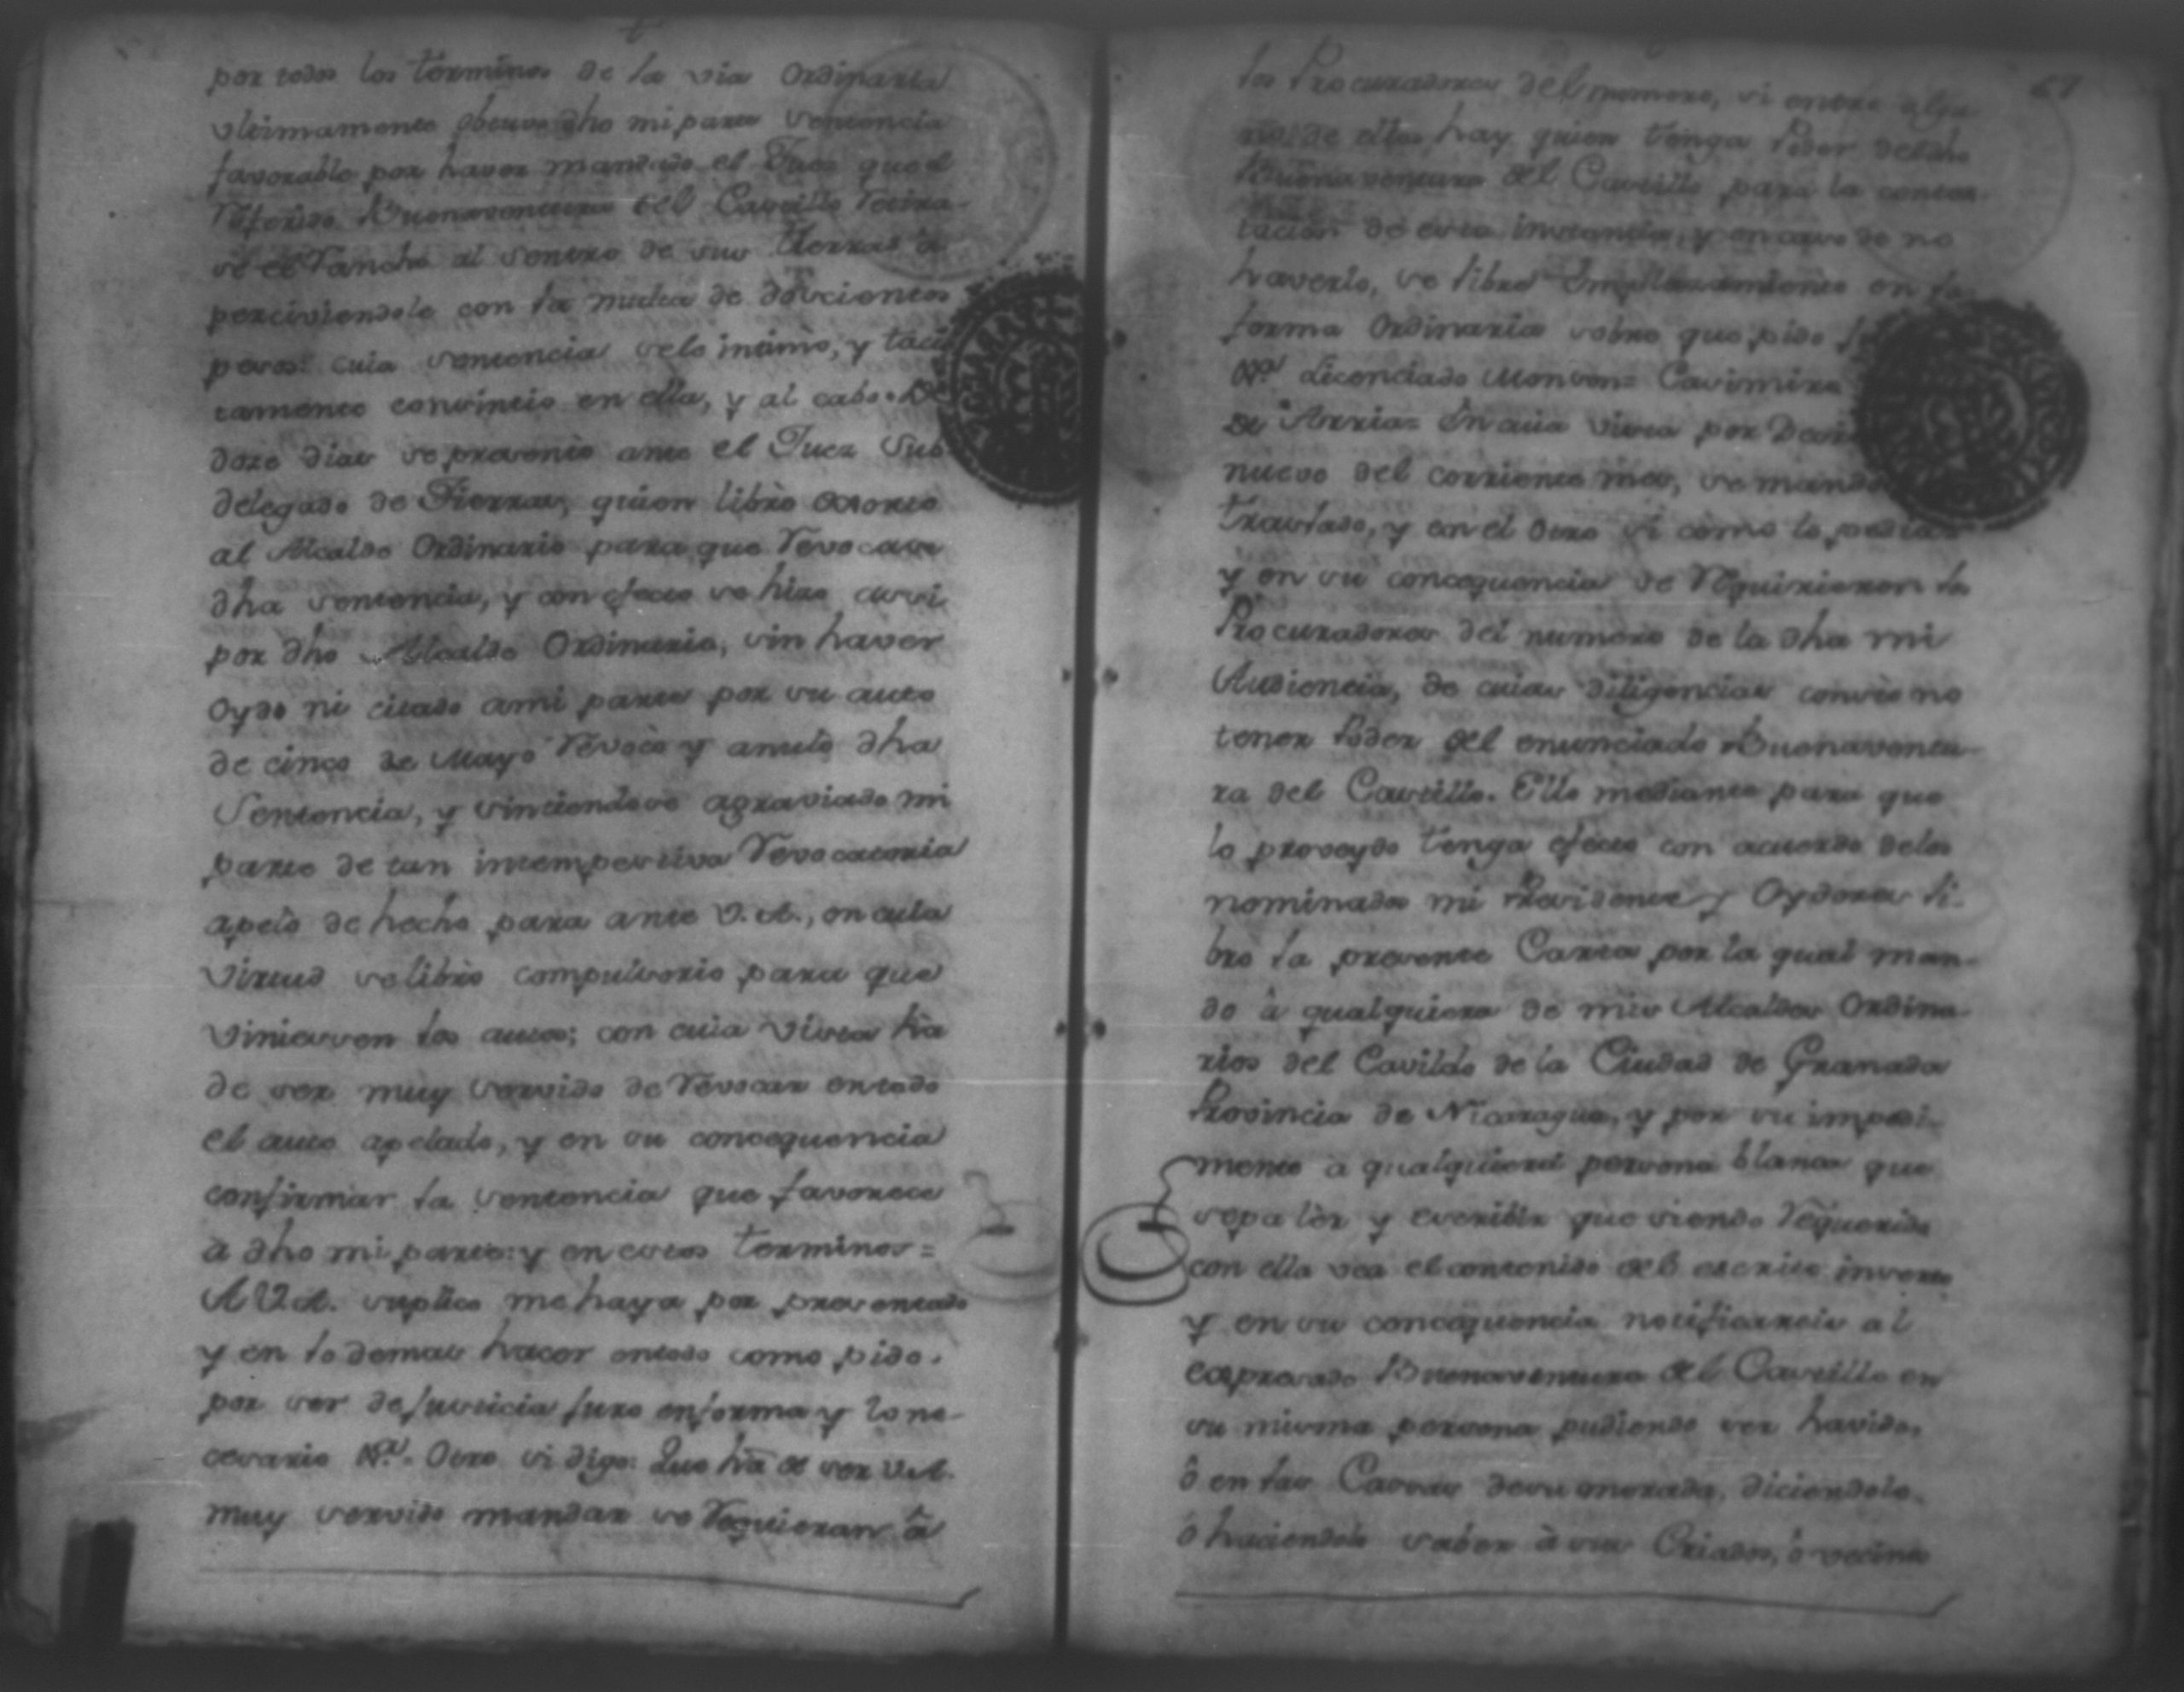 por todos los términos de la via Ordinaria
vltimamente obtuvo dho mi parte Sentencia
favorable por haver mandado el Juez que el
referido Buenaventura del Castillo retira-
se el rancho al Sentro de sus tierras a-
perciviendole con la multa de doscientos
pesos: cuia sentencia se le intimò, y taci
tamente consintio en ella, y al cabo de
doze dias se presento ante el Juez Sub
delegado de Tierras, quien librò exorto
al Alcalde Ordinario para que revocase
dha sentencia, y con efecto se hizo assi
por dho Alcalde Ordinario, sin haver
oydo ni citado ami parte por su auto
de cinco de Mayo revocò y anulò dha
Sentencia, y sintiendose agraviado mi
parte de tan intempestiva revocatoria
apelò de hecho para ante V.A., en cuia
virtud se librò compulsorio para que
viniessen los autos; con cuia vista hà
de ser muy servido de revocar entodo
el auto apelado, y en su consequencia
confirmar la sentencia que favorece
à dho mi parte: y en estos terminos=
A V.A. suplico me haya por presentado
y en lo demas hacer entodo como pido.
por ser de justicia juro enforma y lo ne-
cesario &a. Otro si digo: Que hà de ser V.A.
muy servido mandar se requieran à
los Procuradores del numero, si entre algu-
no de ellos hay quien tenga Poder deldho
Buenaventura del Castillo para la contes-
tacion de esta instancia, y en caso de no
haverlo, se libre Emplazamiento en la
forma Ordinaria sobre que pido
&a Licenciado Monson= Casimiro
de Arria= En cuia vista por Decre
nueve del corriente mes, se mando
traslado, y en el otro si como lo pedia
y en su consequencia se requirieron los
Procuradores del numero de la dha mi
Audiencia, de cuias diligencias consta no
tener Poder del enunciado Buenaventu-
ra del Castillo. Ello mediante para que
lo proveydo tenga efecto con acuerdo delos
nominados mi Presidente y Oydores li-
bro la presente Carta por la qual man-
do à qualquiera de mis Alcaldes Ordina-
rios del Cavildo de la Ciudad de Granada
Provincia de Nicaragua, y por su impedi-
mento a qualquiera persona blanca que
sepa leer y escribir que siendo requerido
con ella vea el contenido del escrito inserto
y en su consequencia notificareis al
expresado Buenaventura del Castillo en
su misma persona pudiendo ser havido,
ô en las Casas desu morada, diciendolo
ô haciendolo saber à sus Criados, ô vecinos